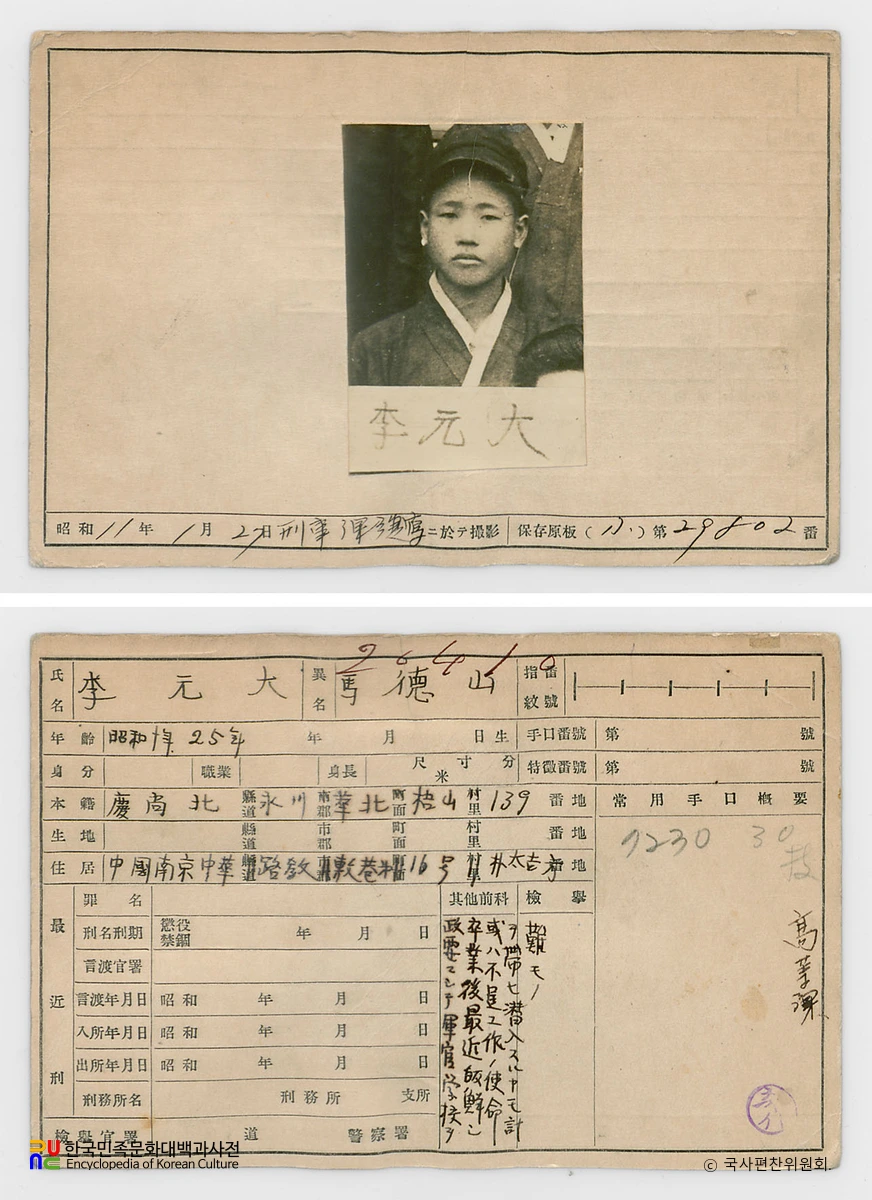 李元大
昭和11年1月27日刑事課ニ於テ撮影
保存原板（ ）第29802番
氏名 李元大
異名 馬德山
26410
指紋番號
年齡 昭和十年25年 年 月 日生
手口番號 第 號
身分 職業 身長 尺寸分 米
特徵番號 第 號
本籍 慶尚北 縣道 永川 市郡 華北 町面 梧山 村里 139 番地
常用手口槪要
生地 縣道 市郡 町面 村里 番地
住居 中國南京中華 縣道 路敎敷巷 16号 村里 朴太古方 番地
7230 30
最近刑
罪名
刑名刑期 懲役 禁錮 年 月 日
言渡官署
言渡年月日 昭和 年 月 日
入所年月日 昭和 年 月 日
出所年月日 昭和 年 月 日
刑務所名 刑務所 支所
檢擧官署 道 警察署
其他前科
檢擧
政要ニシテ軍官学校ヲ
卒業後最近皈鮮シ
或ハ不逞工作ノ使命
ヲ帶ヒ潛入スルヤモ計
難モノ
한국민족문화대백과사전
Encyclopedia of Korean Culture
© 국사편찬위원회.